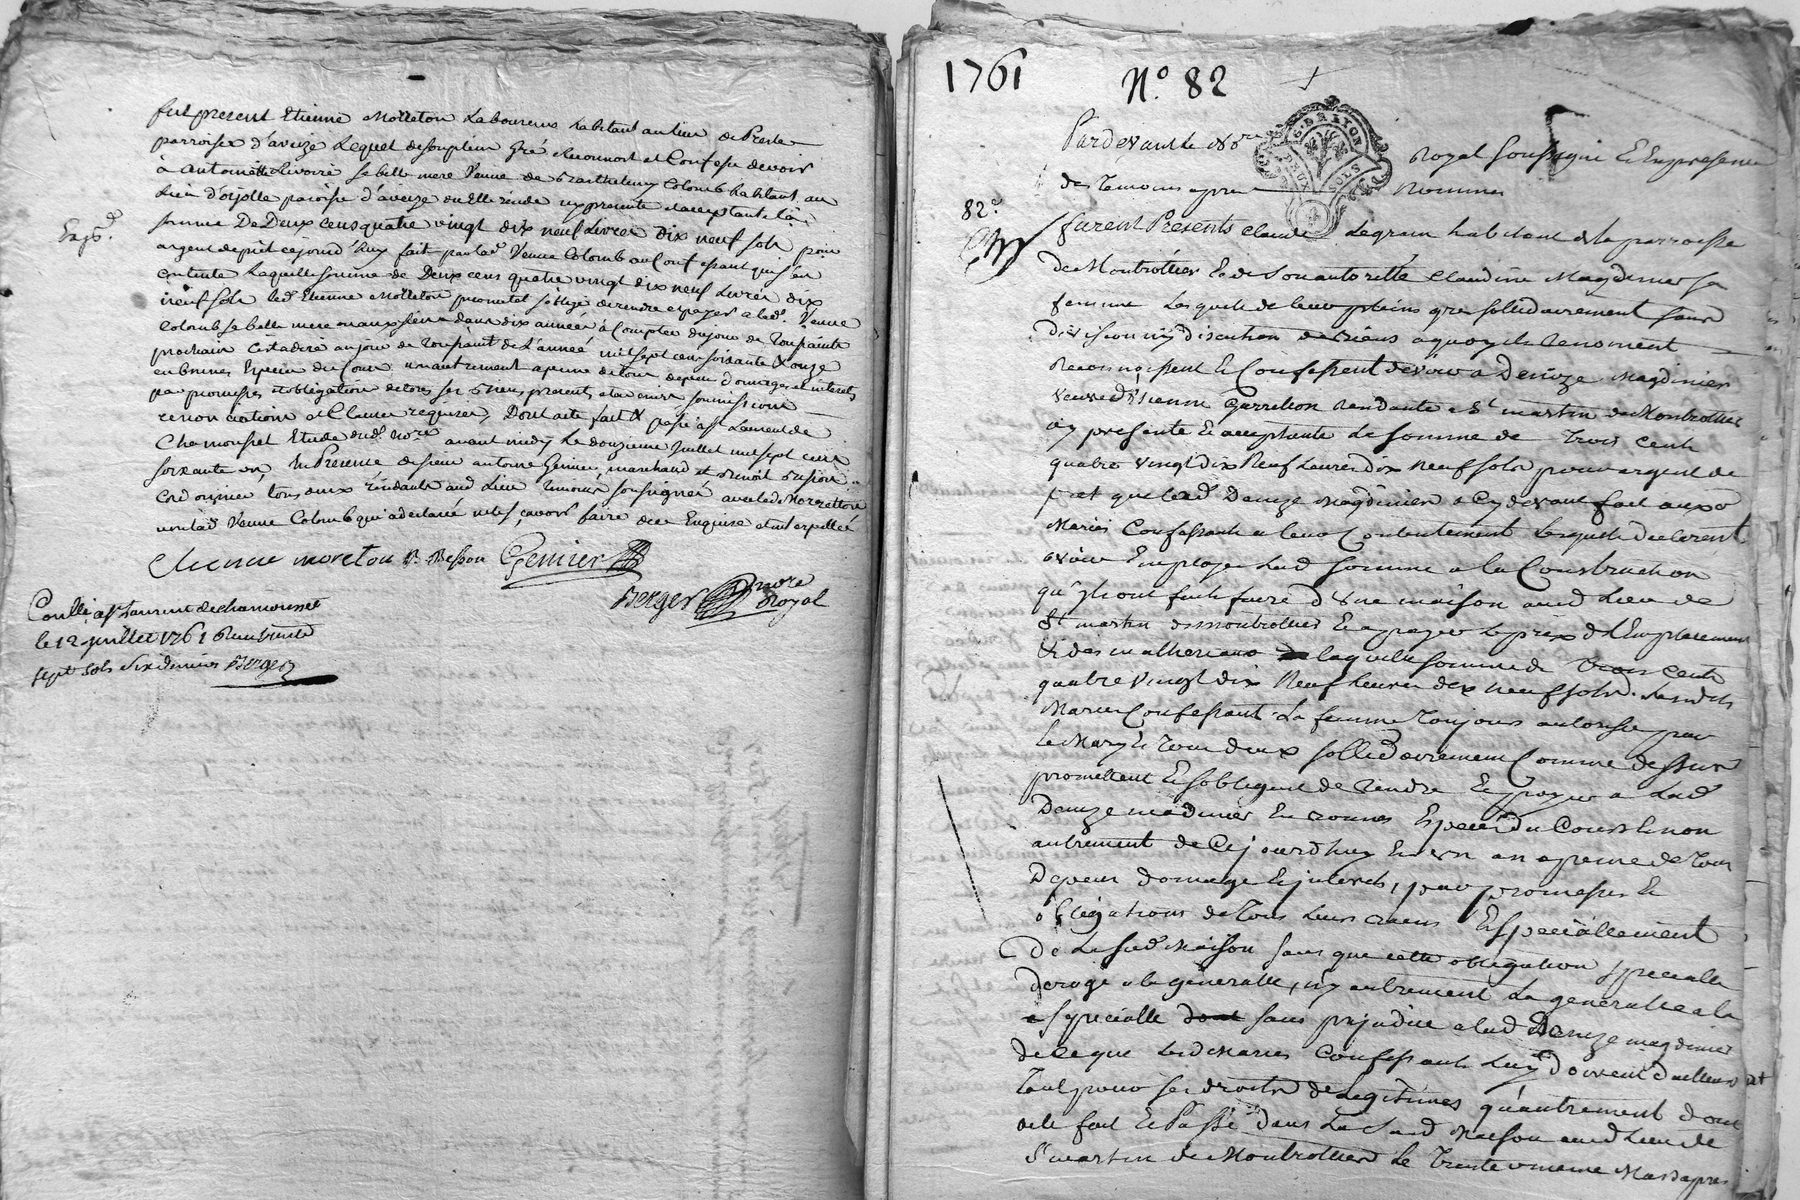 fut present Etienne Molleton Laboureur habitant au lieu de Presle
parroisse d'aveize Lequel de son plein gré reconnoit et Confesse devoir
à Antoinette Livoire sa belle mere Veuve de Barthelemy Colomb habitant au
Lieu d'ojolle paroisse d'aveize ou Elle reside icy presente et acceptante la
somme De Deux cens quatre vingt dix neuf Livres Dix neuf sols pour
argent de prêt cejourd'huy fait par lad. Veuve Colomb au Confessant qui s'en
contente Laquelle somme de Deux cens quatre vingt dix neuf Livres dix
neuf sols led. Etienne Molleton promet et s'oblige de rendre et payer a lad. Veuve
Colomb sa belle mere ou aux siens dans dix années à Compter du jour de Toussaints
prochain C'estadire au jour de Toussaint de L'année mil sept cens soixante & onze
en bonnes Especes du Cours unautrement a peine de tous depens domages et interets
par promesses obligation de tous ses biens presents et avenir soumissions
renonciations et Clauses requises, Dont acte fait & passé a St Laurent de
Chamousset Etude dud. Nore avant midy Le douzieme Juillet mil sept cens
soixante un, En Presence de sieur antoine Genier, marchand et Benoit Besson
Cordonnier tous deux residants aud. Lieu temoins soussignés avec led. Moretton
non lad. Veuve Colomb qui a declaré ne le scavoir faire de ce Enquise et interpellée
etienne moreton B. Besson Genier
Berger nore Royal
Conllé a St Laurent de chamousset
le 12 juillet 1761 Recu trente
sept sols six deniers Berger
1761 No. 82
Pardevant le No.re Royal soussigné Et En presence
G. DE LYON
DEUX SOLS
des Temoins apres Nommes
82.e
furent Presents Claude Legrain habitant de la parroisse
de Montrottier & de son autorité Claudine Magdinier sa
femme Lesquels de leurs pleins gres sollidairement sans
division ny discution de biens a quoy ils Renoncent
Reconnoissent & Confessent devoir a Denize Magdinier
veuve d'Etienne Garrellon Rendante a St martin de Montrottier
icy presente & acceptante La somme de Trois cent
quatre vingt dix Neuf Livres dix neuf sols pour argent de
prêt que lad. Denize Magdinier a Cy devant fait auxd.
Mariés Confessants a leur Contentement Lesquels declarent
avoir Employe Lad. somme a la Construction
qu'ils ont fait faire d'une maison aud. Lieu de
St martin de montrottier & a payer le prix de l'Emplacement
& des matheriaux laquelle somme de trois cent
quatre vingt dix Neuf Livres dix neuf sols. Lesdits
Mariés Confessants La femme Toujours autorisée par
le Mary & tous deux sollidairement Comme dessus
promettent & sobligent de rendre & payer a Lad.
Denize madinier En bonnes Especes du Cours & non
autrement de Cejourdhuy En un an a peine de tous
Depens domage & interets, par promesses &
obligations de Tous Leurs biens Especiallement
De La sud. Maison sans que cette obligation specialle
deroge a la generalle, ny autrement La generalle a la
specialle sans prejudice a lad. Denize magdinier
de ce que Lesd. Mariés Confessants Luy doivent d'ailleurs
Tant pour ses droits de Legitimes qu'autrement dont
acte fait & Passé dans La sud. Maison aud. Lieu de
St martin de Montrottier Le Trente unieme Mars apres